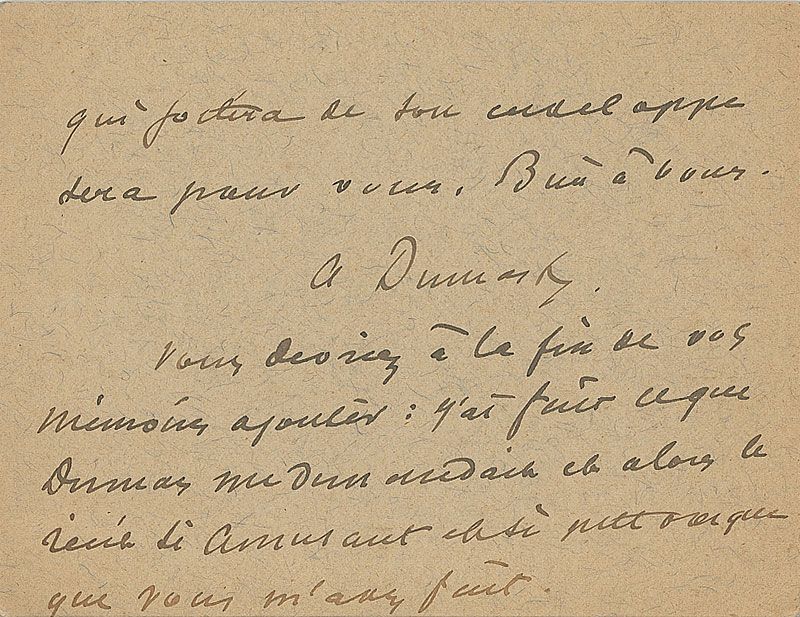 qui sortira de son enveloppe
sera pour vous. Bien à vous.
A Dumas f.
Vous devriez à la fin de vos
mémoires ajouter : j'ai fait ce que
Dumas me demandait et alors le
récit si amusant et si pittoresque
que vous m'avez fait.